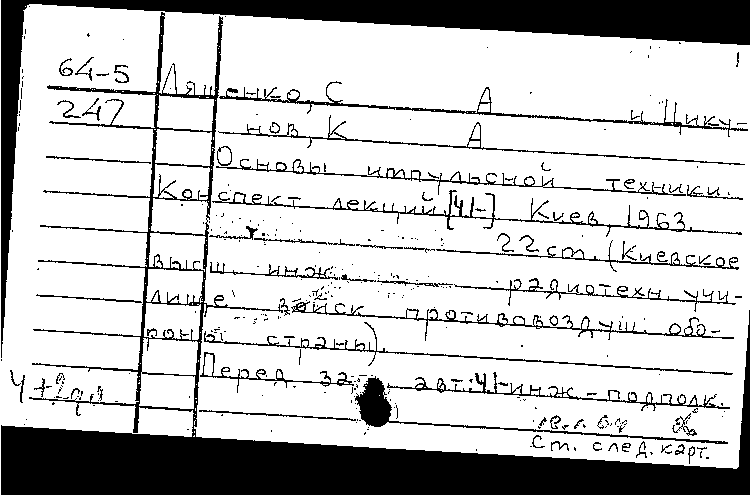 64-5 Ляшенко, С А и Цику-
247 нов, К А
Основы импульсной техники.
Конспект лекций. [Ч.1-] Киев, 1963.
т. 22 ст. (Киевское
высш. инж. радиотехн. учи-
лище войск противовоздуш. обо-
роны страны).
Перед загл. авт.: Ч.1-инж.-подполк.
18.1.64
Ст. след. карт.